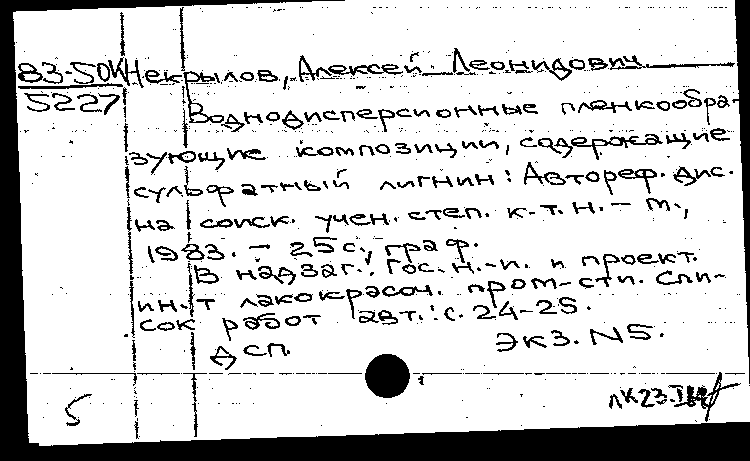 83-50К Некрылов, Алексей Леонидович.
5227
Воднодисперсионные пленкообра-
зующие композиции, содержащие
сульфатный лигнин: Автореф. дис.
на соиск. учен. степ. к. т. н. - М.,
1983. - 25 с., граф.
В надзаг.: Гос. н.-и. и проект.
ин-т лакокрасоч. пром-сти. Спи-
сок работ авт.: с. 24-25.
Дсп. Экз. N5.
5 ЛК23.